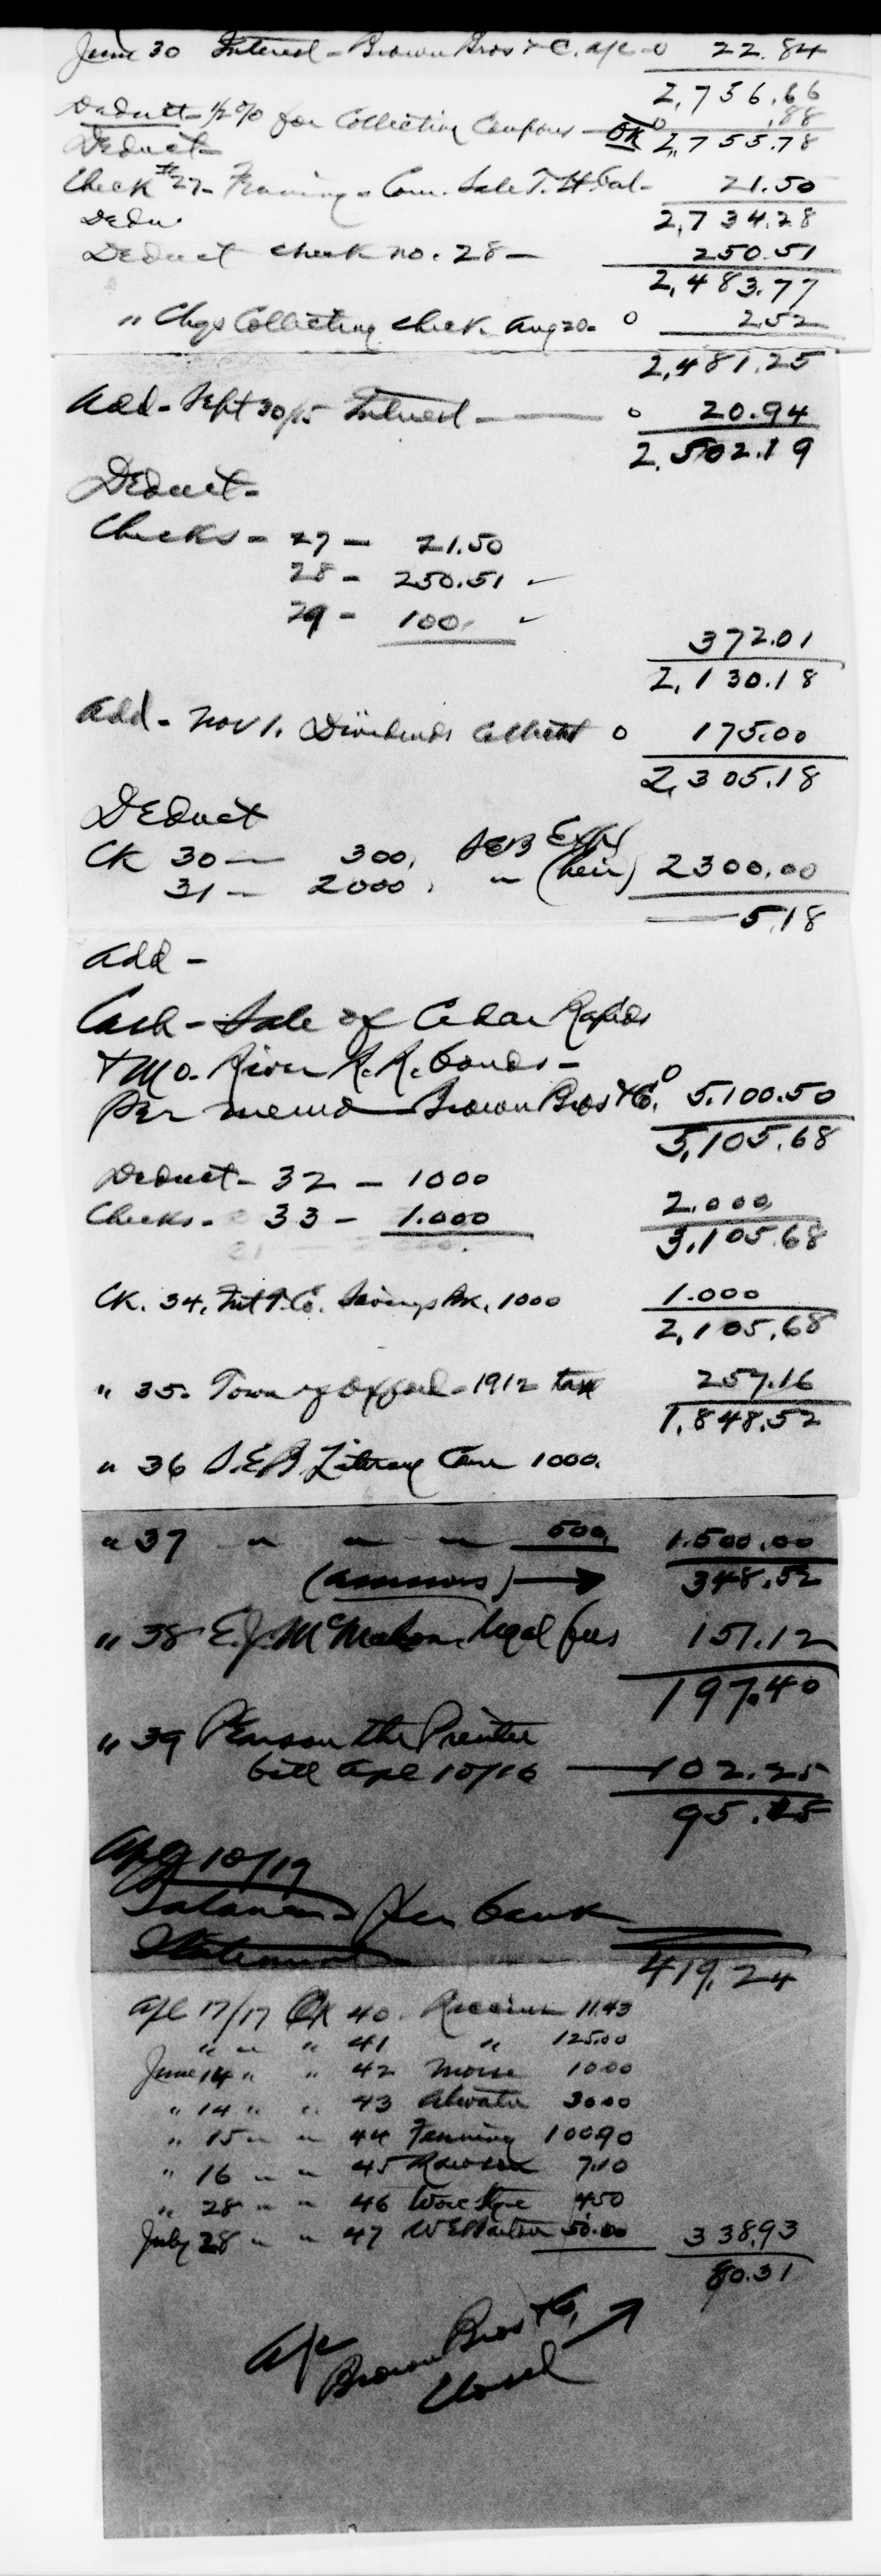 June 30 Interest - Brown Bros & C. a/c - 0 22.84
2,756.66
Deduct - 1/2 % for Collecting Coupons - 0 .88
Deduct - OK 2,755.78
Check #27 - Fenning - Com. Sale T. H. Cal - 21.50
Dedu 2,734.28
Deduct check no. 28 - 250.51
2,483.77
" Chgs Collecting check Aug 20 - 0 2.52
2,481.25
Add - Sept 30/15 Interest - 0 20.94
2,502.19
Deduct -
Checks - 27 - 21.50
28 - 250.51 ✓
29 - 100. ✓
372.01
2,130.18
Add - Nov 1. Dividends Collected 0 175.00
2,305.18
Deduct
CK 30 - 300. SEB
31 - 2000. " (heir) 2300.00
5.18
Add -
Cash - Sale of Cedar Rapids
& Mo. River R.R. bonds -
Per memo Brown Bros & Co. 0 5,100.50
5,105.68
Deduct - 32 - 1000
Checks - 33 - 1.000 2.000
3,105.68
CK. 34, Savings Bk. 1000 1.000
2,105.68
" 35. Town of Oxford - 1912 tax 257.16
1,848.52
" 36 S.E.B. Literary Com 1000.
" 37 " " " 500. 1.500.00
348.52
" 38 E.J. McMahon, legal fees 151.12
197.40
" 39 Pearson the Printer
bill Apl 10/16 - 102.25
95.15
Apl 10/17
Balance per bank
Statement
419.24
Apl 17/17 CK 40 11.43
" " " 41 " 125.00
June 14 " " 42 Morse 10.00
" 14 " " 43 Atwater 30.00
" 15 " " 44 Fenning 100.90
" 16 " " 45 Rawson 7.10
" 28 " " 46 4.50
July 28 " " 47 W E Barton 50.00 338.93
80.31
A/c
Brown Bros & Co,
Closed